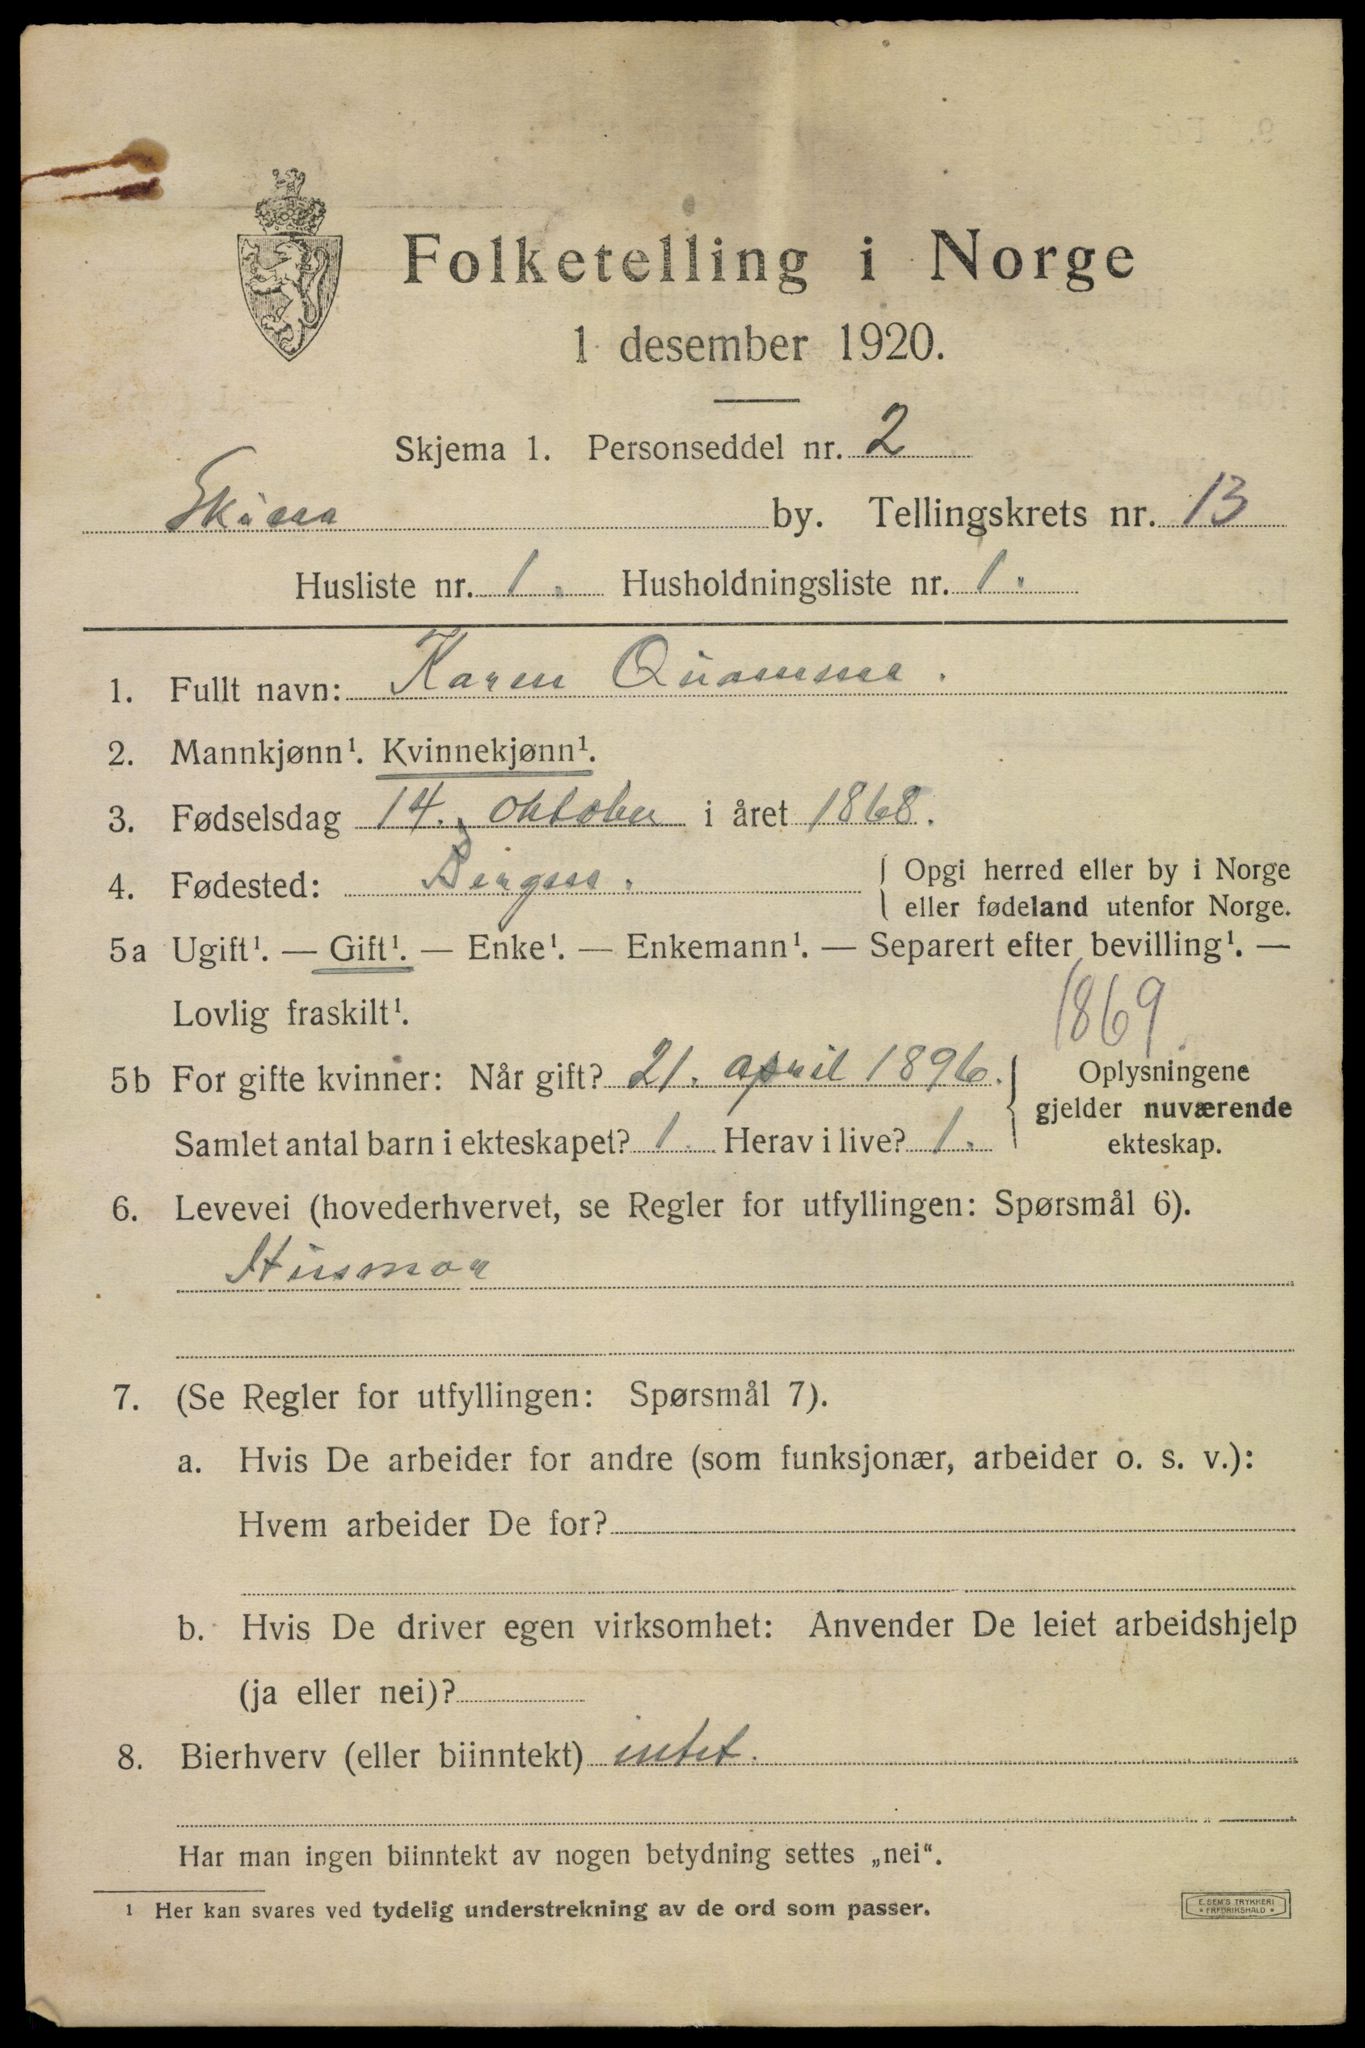 Folketelling i Norge
1 desember 1920.
Skjema 1. Personseddel nr. 2
Skien by. Tellingskrets nr. 13
Husliste nr. 1. Husholdningsliste nr. 1.
1. Fullt navn: Karen Quamme.
2. Mannkjønn¹. Kvinnekjønn¹.
3. Fødselsdag 14. oktober i året 1868.
4. Fødested: Bergen. Opgi herred eller by i Norge
eller fødeland utenfor Norge.
5a Ugift¹. — Gift¹. — Enke¹. — Enkemann¹. — Separert efter bevilling¹. —
Lovlig fraskilt¹. 1869
5b For gifte kvinner: Når gift? 21. april 1896. Oplysningene
gjelder nuværende
Samlet antal barn i ekteskapet? 1. Herav i live? 1. ekteskap.
6. Levevei (hovederhvervet, se Regler for utfyllingen: Spørsmål 6).
Husmor
7. (Se Regler for utfyllingen: Spørsmål 7).
a. Hvis De arbeider for andre (som funksjonær, arbeider o. s. v.):
Hvem arbeider De for?
b. Hvis De driver egen virksomhet: Anvender De leiet arbeidshjelp
(ja eller nei)?
8. Bierhverv (eller biinntekt) intet.
Har man ingen biinntekt av nogen betydning settes „nei“.
¹ Her kan svares ved tydelig understrekning av de ord som passer.
E. SEM'S TRYKKERI
* FREDRIKSHALD *